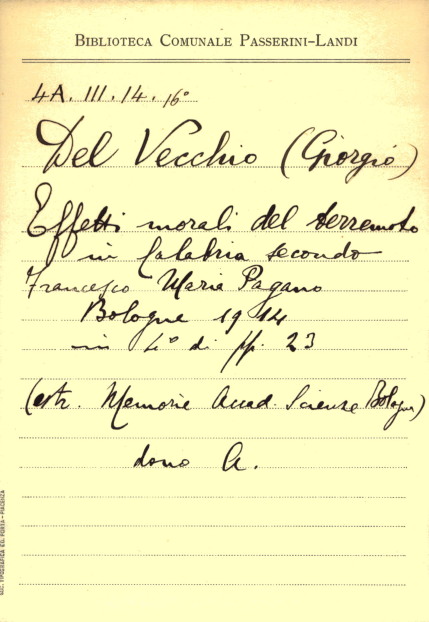 BIBLIOTECA COMUNALE PASSERINI-LANDI
4A. III. 14. 16°
Del Vecchio (Giorgio)
Effetti morali del terremoto
in Calabria secondo
Francesco Maria Pagano
Bologna 1914
in 4° di pp. 23
(estr. Memorie Accad. Scienze Bologna)
dono A.
SOC. TIPOGRAFICA ED. PORTA - PIACENZA